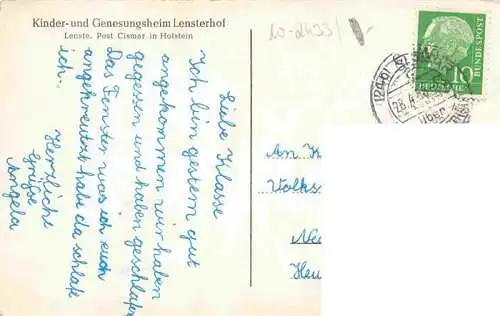 Kinder- und Genesungsheim Lensterhof
Lenste, Post Cismar in Holstein
Liebe Klasse
Ich bin gestern gut
angekommen wir haben
gegessen und haben geschlafen
Das Fenster was ich euch
angekreutzt habe da schlafe
ich.
Herzliche
Grüße
Angela
An K
Volks
Ne
Heu
10
DEUTSCHE
BUNDESPOST
(24b)
über